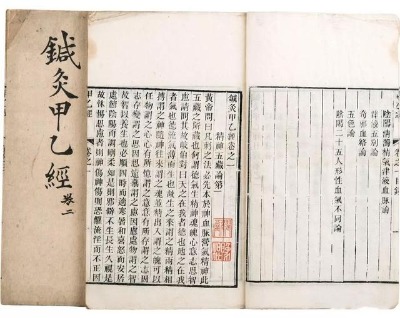 陰陽清濁精氣津液血脈論
津液五別論
奇邪血絡論
五色論
陰陽二十五人形性血氣不同論
鍼灸甲乙經卷之一
精神五藏論第一
黃帝問曰凡刺之法必先本於神血脈營氣精神此
五藏之所藏也何謂德氣生精神魂魄心意志思智
慮請問其故岐伯對曰天之在我者德也地之在我
者氣也德流氣薄而生也故生之來謂之精兩精相
搏謂之神隨神往來謂之魂並精出入謂之魄可以
任物謂之心心有所憶謂之意意有所存謂之志因
志存變謂之思因思遠慕謂之慮因慮處物謂之智
故智以養生也必順四時而適寒暑和喜怒而安居
處節陰陽而調剛柔如是則邪僻不生長生久視是
故怵惕思慮者則神傷神傷則恐懼流淫而不正因
甲乙經
鍼灸甲乙經 卷二